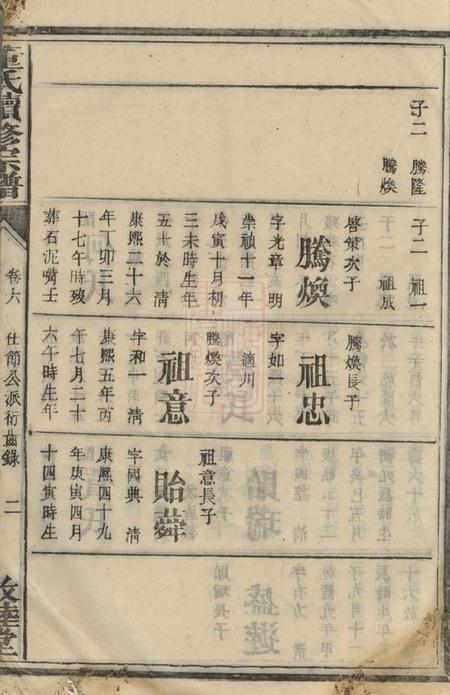 子二 騰隆
騰煥
子二 祖一
祖成
啓榮次子
騰煥
字光章 明
崇禎十一年
戊寅十月初
三未時生年
五十於 清
康熙二十六
年丁卯三月
十七午時殁
葬石泥嘴土
騰煥長子
祖忠
字如一
適川
騰煥次子
祖意
字和一 清
康熙五年丙
午七月二十
六午時生年
祖意長子
貽舜
字國典 清
康熙四十九
年庚寅四月
十四寅時生
董氏續修宗譜
卷六
仕節公派衍曲錄
二
敦睦堂